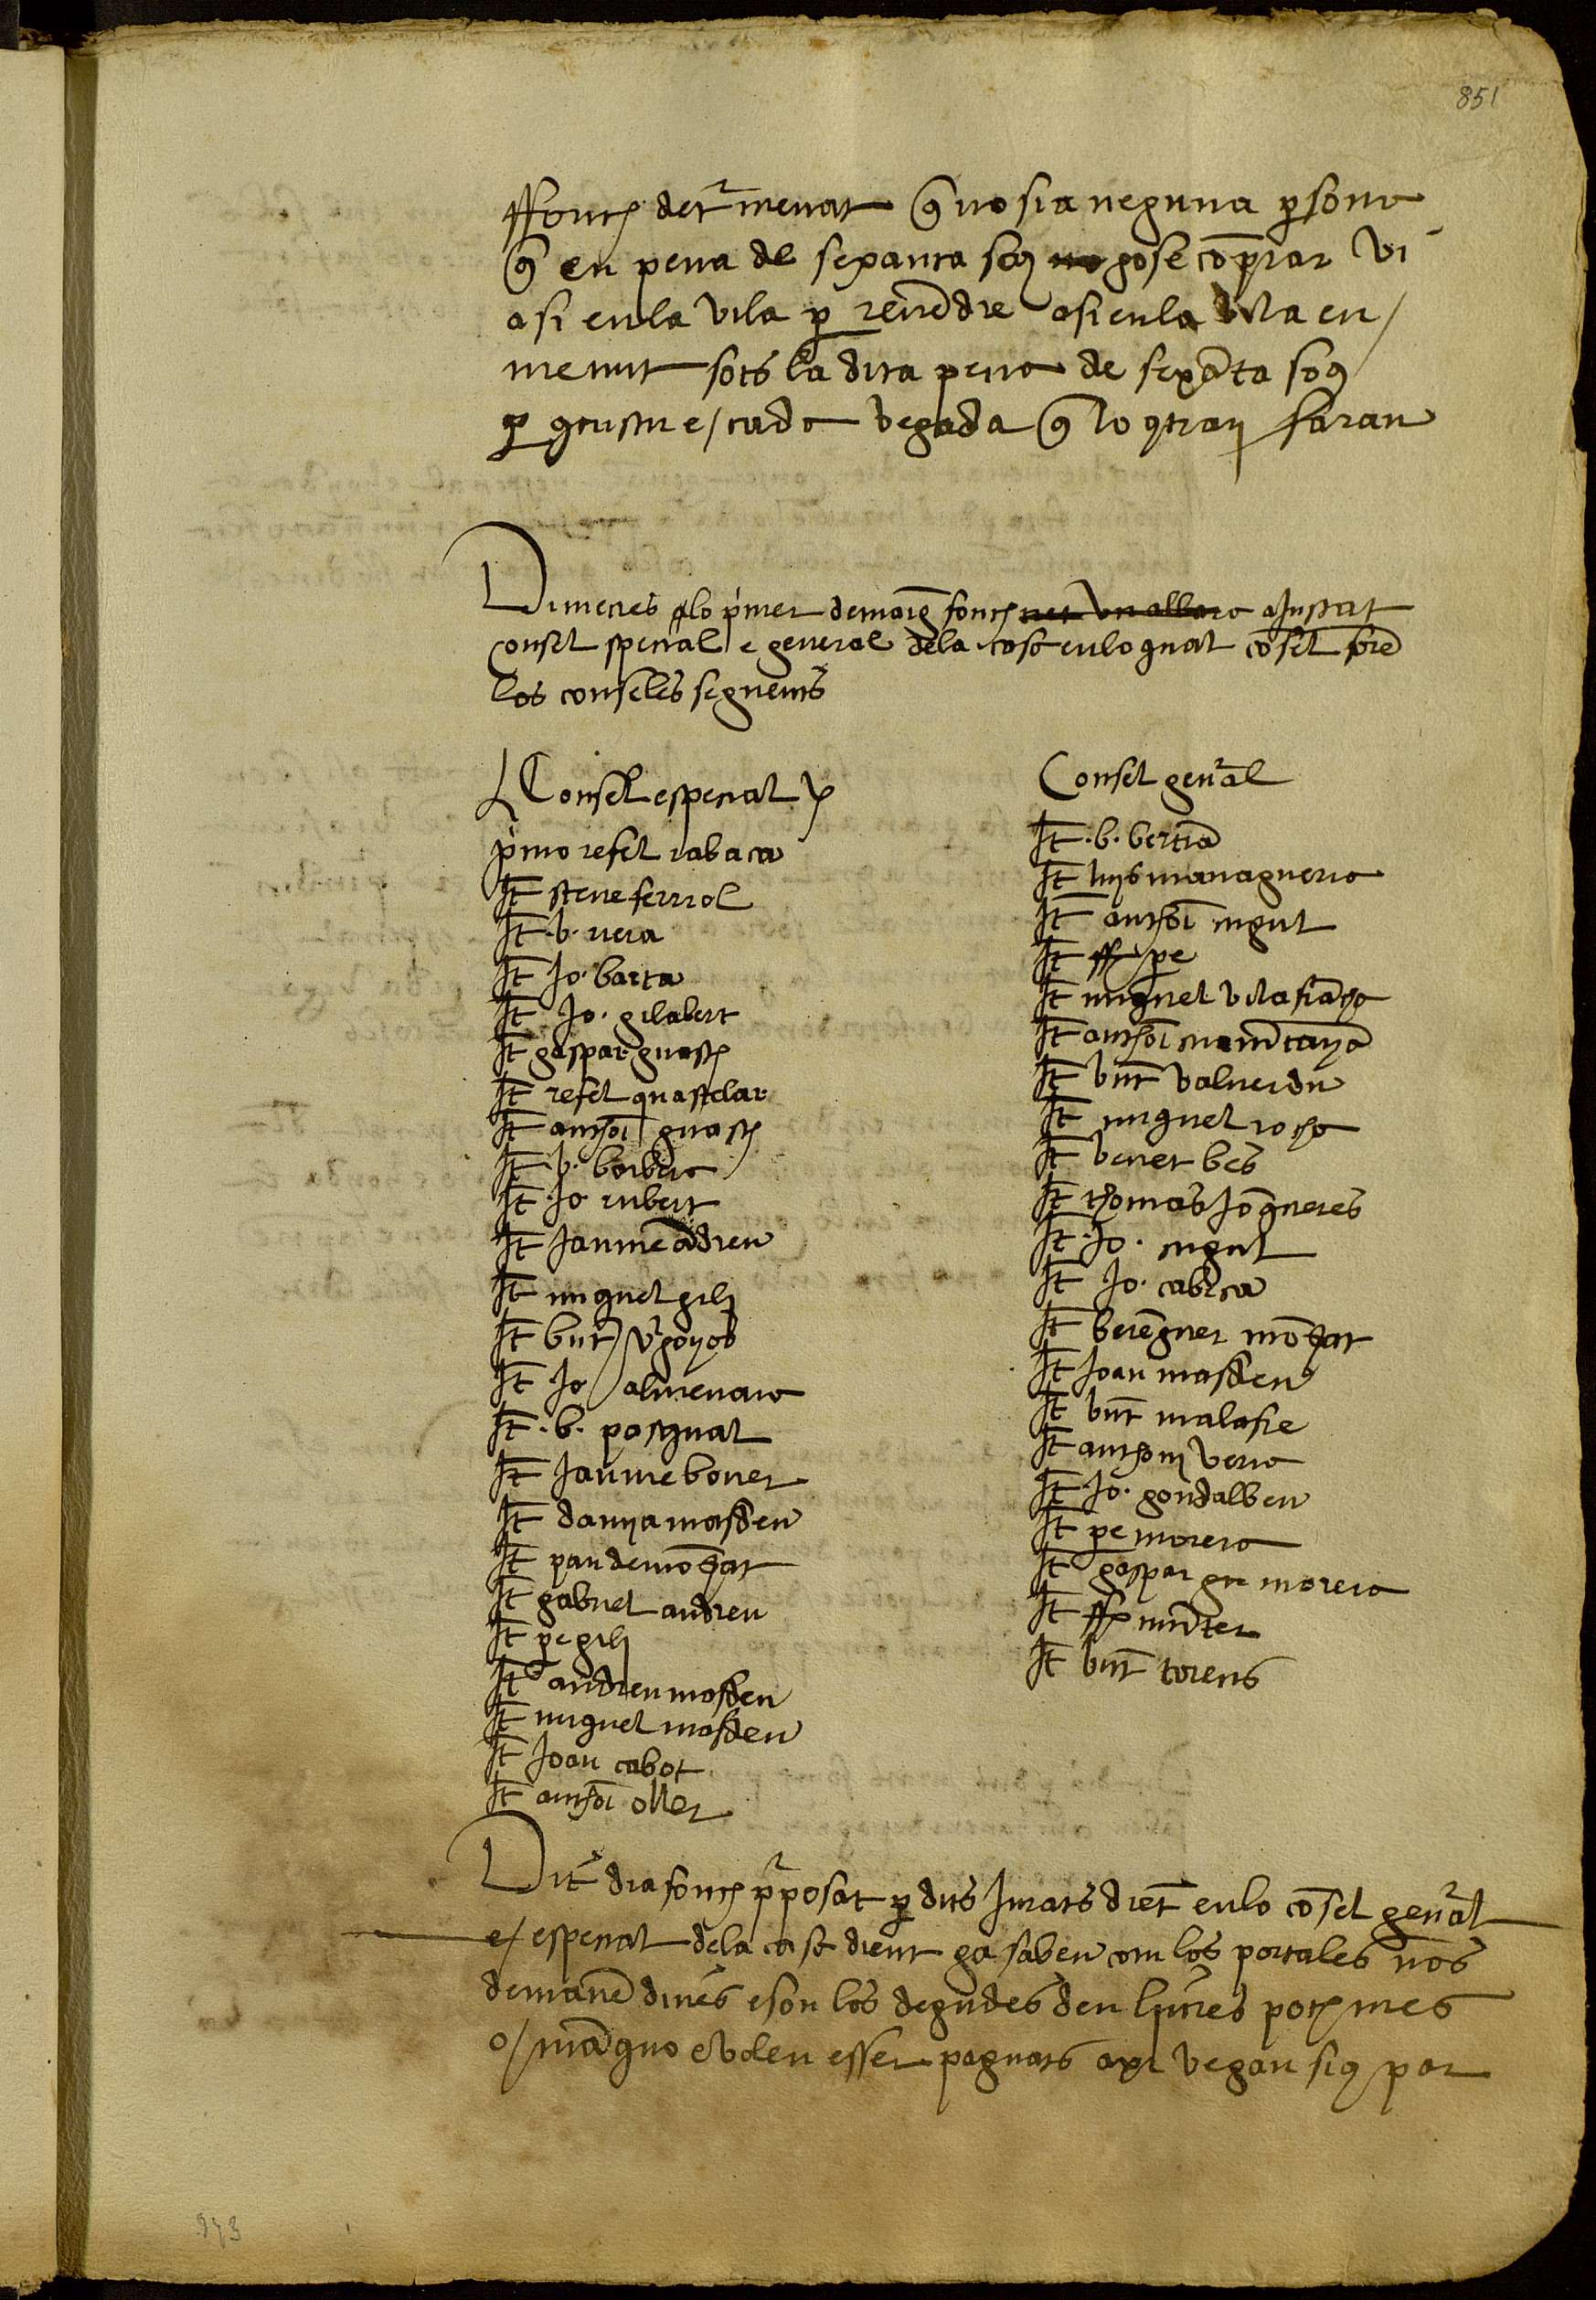 851
ffonch det'menat q̄ no sia neguna p̄sona
q̄ en pena de sexanta sos no gose cōprar vi
asi en la vila p̄ revēdre asi en la vila en
menut sots la dita pena de sexāta sos
p̄ cascu e / cada vegada q̄ lo contrari faran
Dimecres lo p'mer de març fonch ajustat
Consel special e general de la casa en lo qual cōsel foren
los conseles seguents
Consel especial
p'mo refel rabaca
It steve ferriol
It .b. vera
It Jo. barta
It Jo. gilabert
It gaspar guasch
It refel quastelar
It anthoi guasch
It .b. barbera
It .Jo. rubert
It Jaume ādreu
It miquel gili
It bnt v'goyos
It Jo almenara
It .b. pasqual
It Jaume bover
It damia masdeu
It pau de mōtat
It gabriel andreu
It pe gili
It andreu masdeu
It miquel masdeu
It Joan cabot
It anthoi oller
Consel gen'al
It .b. bertrā
It luys managuera
It anthoi singul
It ff pe
It miquel vilafrācha
It anthoi montanya
It bnt valverdu
It miquel rocha
It benet bes
It thomas Jōqueres
It .Jo. singul
It Jo. cabeca
It berēguer mōtat
It Joan masdeu
It bnt malafre
It anthoni vera
It .Jo. gondalbeu
It pe morera
It gaspar morera
It ff mūter
It bnt torens
Dit dia fonch p'posat p̄ dits Jurats dient en lo cōsel gen'al
e / especial de la casa dient ja saben com los portales nos
demanē dines e son los degudes den liures poch mes
o / mācho e volen esser paguats axi vegan si q̄ par
973